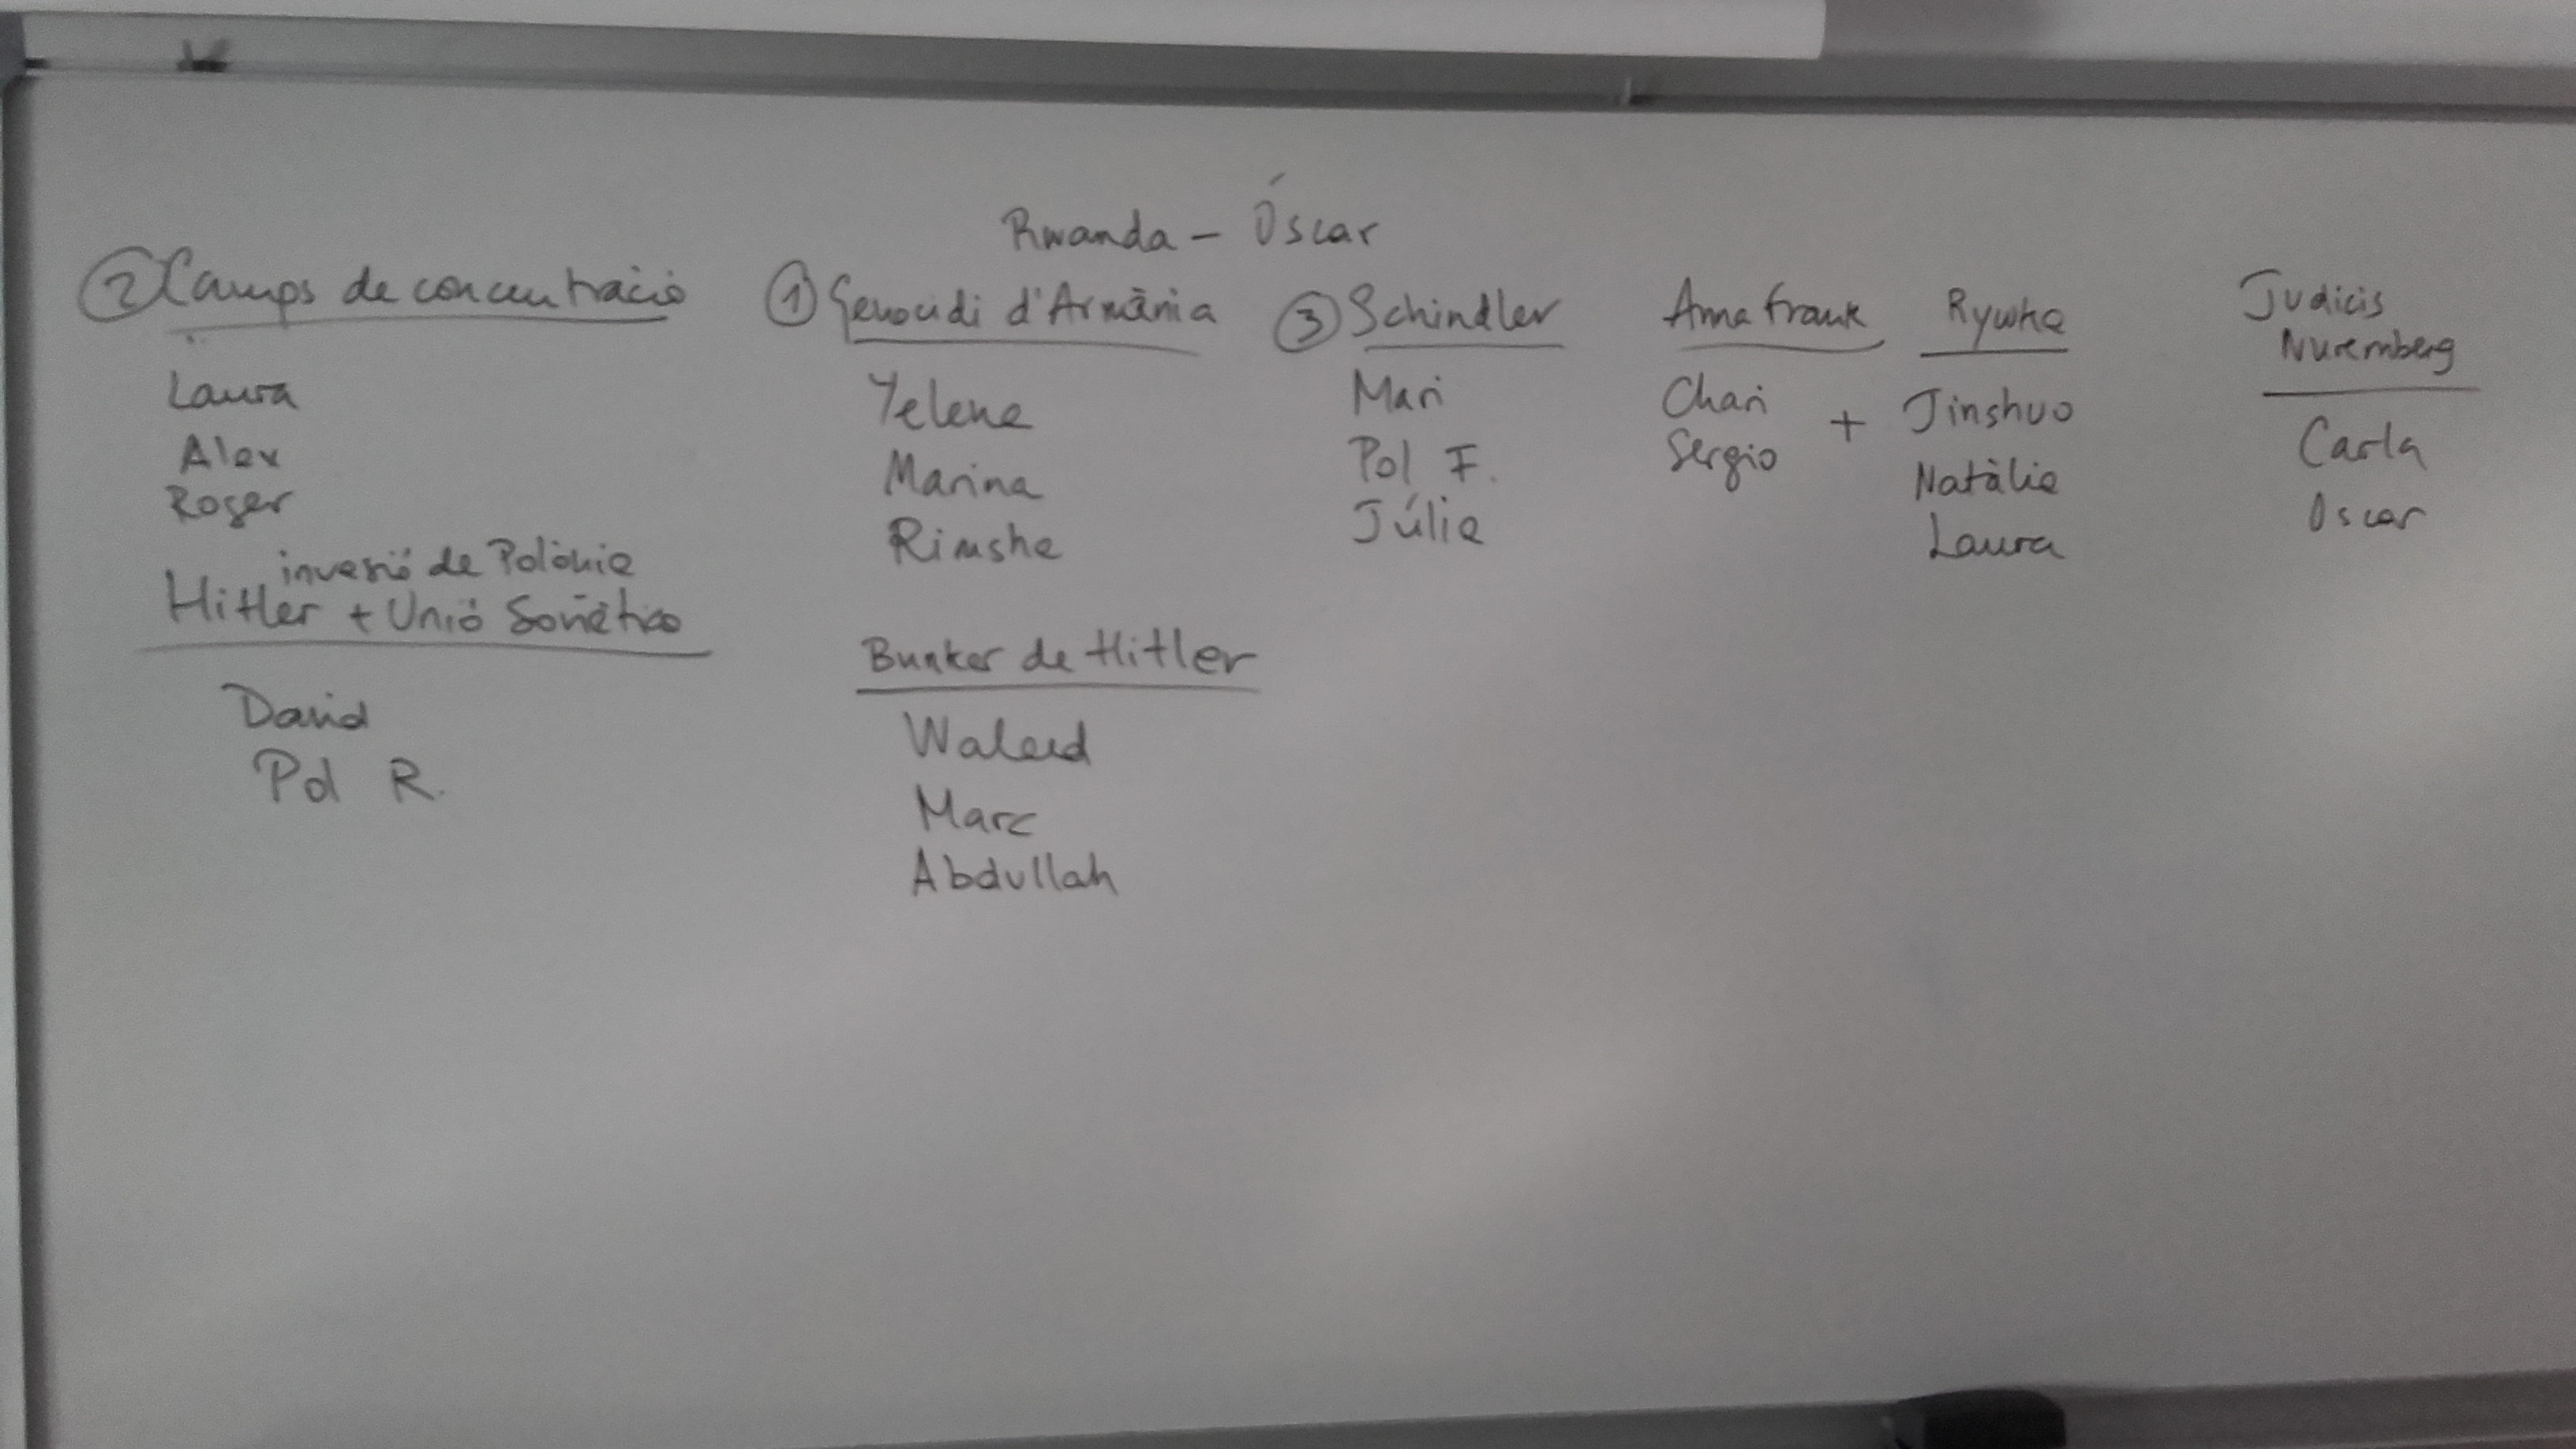 Rwanda - Óscar
② Camps de concentració
Laura
Alex
Roger
① Genocidi d'Armènia
Yelena
Marina
Rimsha
③ Schindler
Mari
Pol F.
Júlia
Anna Frank
Chari
Sergio
+
Rywka
Jinshuo
Natàlia
Laura
Judicis
Nuremberg
Carla
Oscar
invasió de Polònia
Hitler + Unió Soviètica
David
Pol R.
Bunker de Hitler
Waleed
Marc
Abdullah